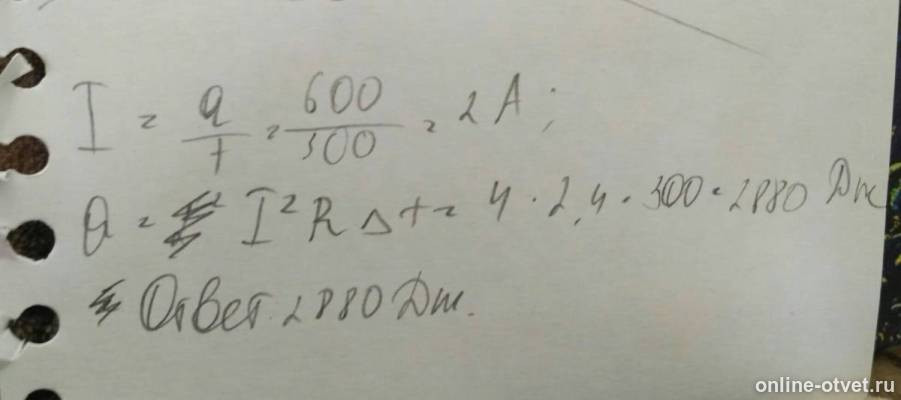 I = q/t = 600/300 = 2 A;
Q = I²RΔt = 4 · 2,4 · 300 = 2880 Дж
Ответ: 2880 Дж.
online-otvet.ru